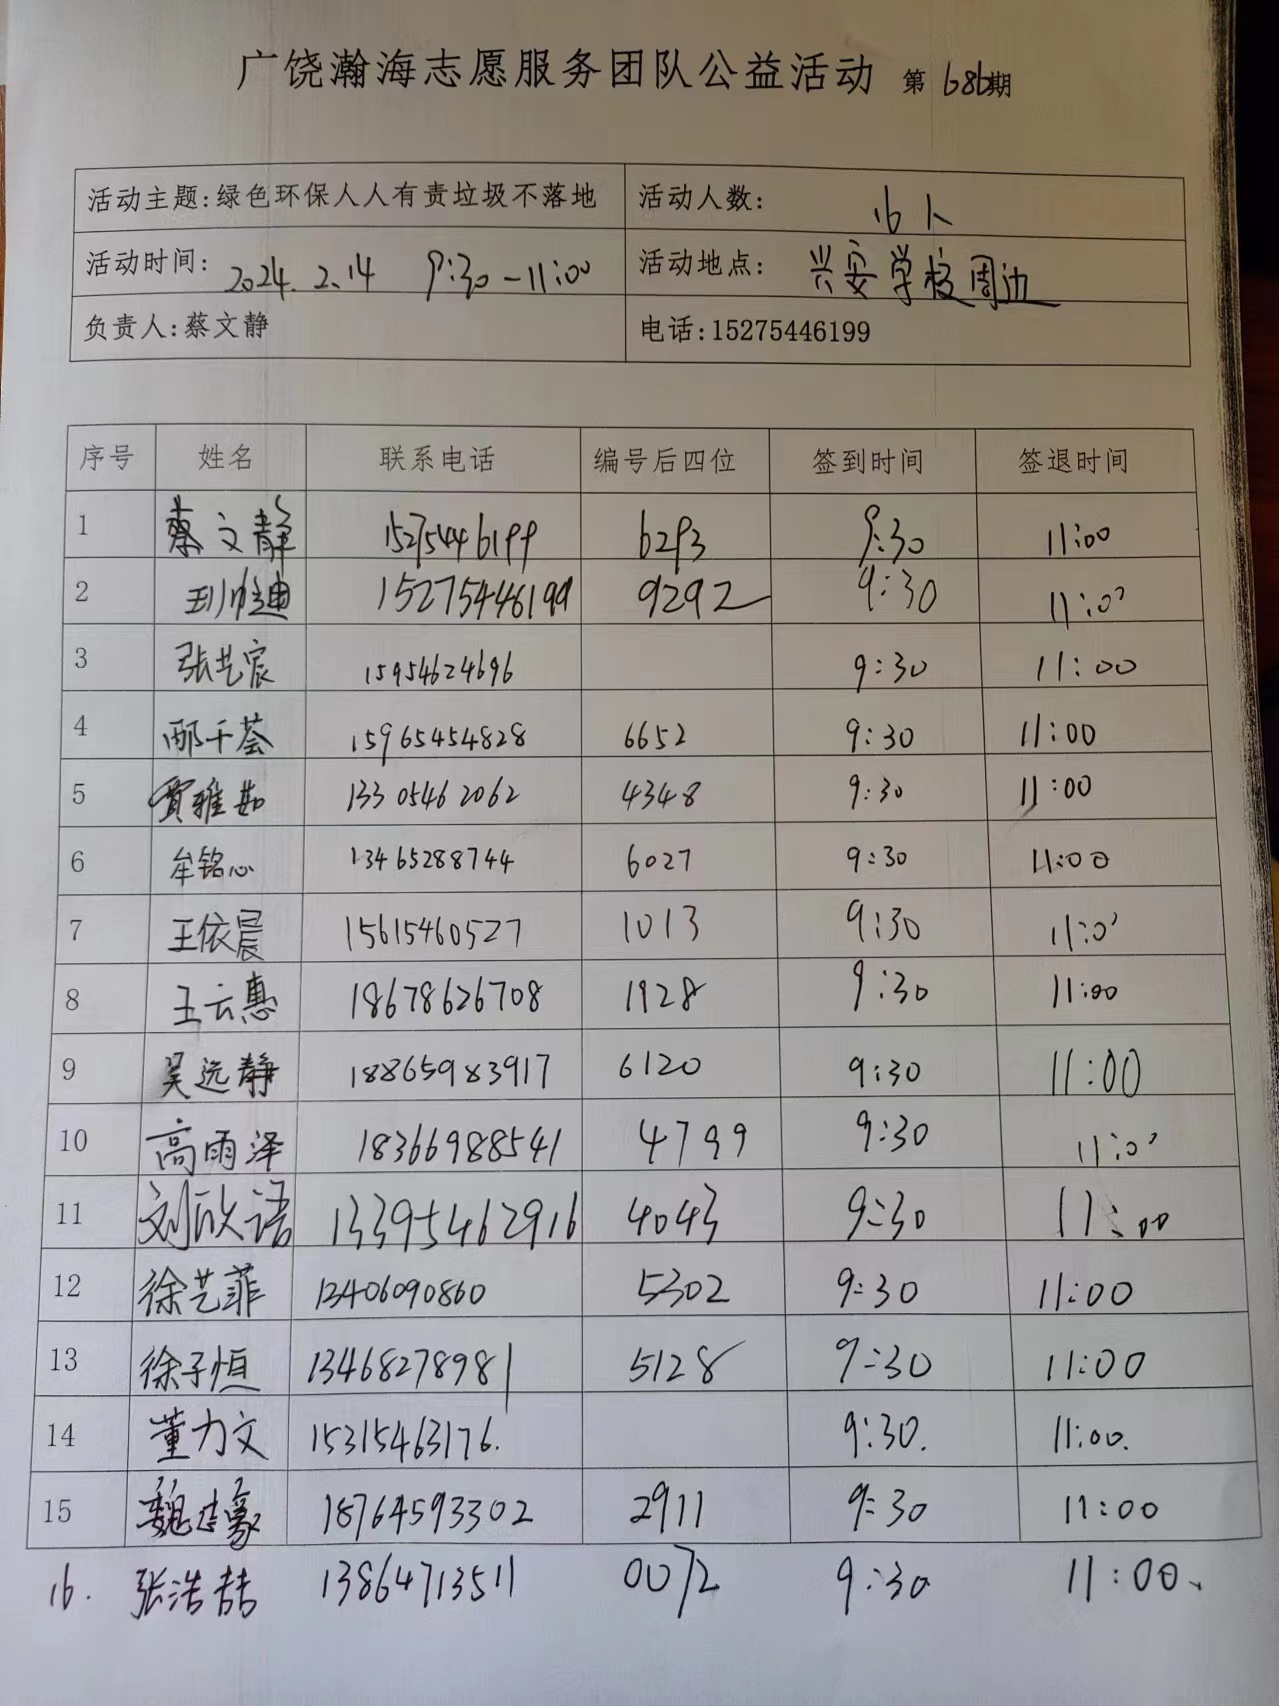 广饶瀚海志愿服务团队公益活动 第686期
活动主题:绿色环保人人有责垃圾不落地 活动人数: 16人
活动时间: 2024.2.14 9:30-11:00 活动地点: 兴安学校周边
负责人:蔡文静 电话:15275446199
序号 姓名 联系电话 编号后四位 签到时间 签退时间
1 蔡文静 15275446199 6293 9:30 11:00
2 15275446199 9292 9:30 11:00
3 张艺宸 15954624696 9:30 11:00
4 邴千荟 15965454828 6652 9:30 11:00
5 贾雅茹 13305462062 4348 9:30 11:00
6 牟铭心 13465288744 6027 9:30 11:00
7 王依晨 15615460527 1013 9:30 11:00
8 王云惠 18678626708 1928 9:30 11:00
9 吴远静 18865983917 6120 9:30 11:00
10 高雨泽 18366988541 4799 9:30 11:00
11 刘欣语 13395462916 4043 9:30 11:00
12 徐艺菲 13406090860 5302 9:30 11:00
13 徐子恒 13468278981 5128 9:30 11:00
14 董力文 15315463176. 9:30. 11:00.
15 18764593302 2911 9:30 11:00
16. 张浩喆 13864713511 0072 9:30 11:00.